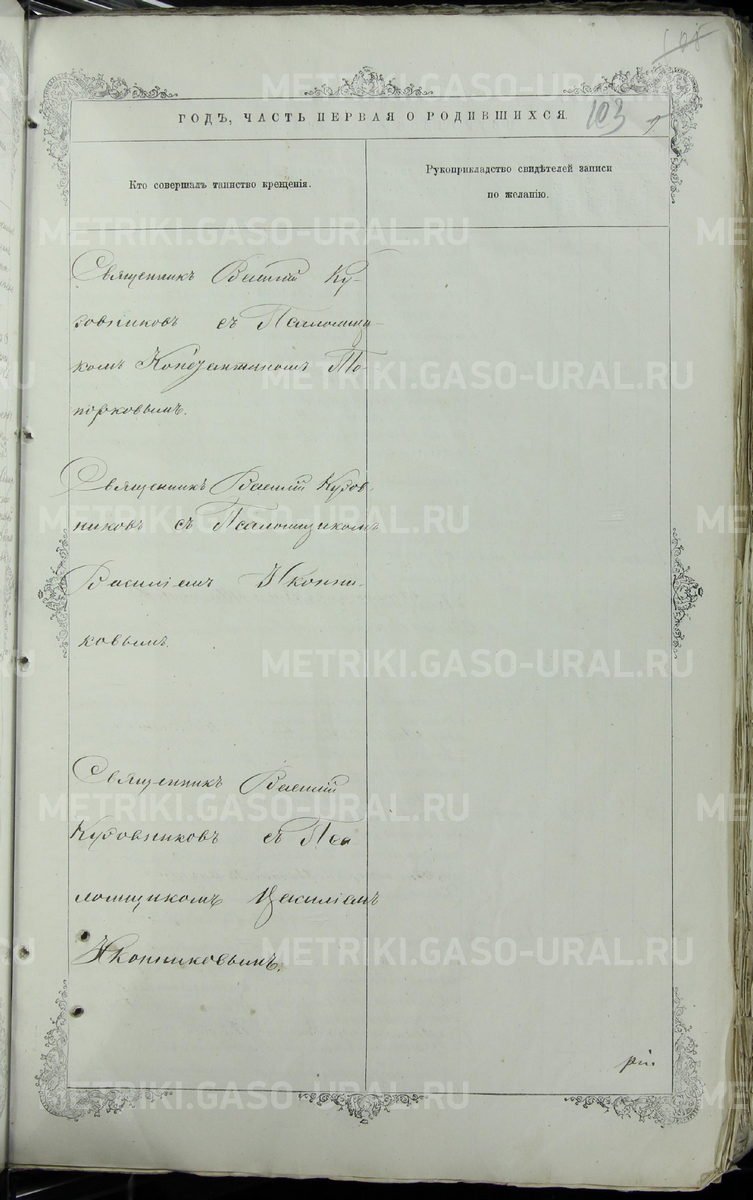 108
ГОДЪ, ЧАСТЬ ПЕРВАЯ О РОДИВШИХСЯ.
103
Кто совершалъ таинство крещенія.
Рукоприкладство свидѣтелей записи
по желанію.
Священникъ Василій Ку-
зовниковъ съ Псаломщи-
комъ Константиномъ То-
порковымъ.
Священникъ Василій Кузов-
никовъ съ Псаломщикомъ
Василіемъ Иконни-
ковымъ.
Священникъ Василій
Кузовниковъ съ Пса
ломщикомъ Василіемъ
Иконниковымъ.
METRIKI.GASO-URAL.RU